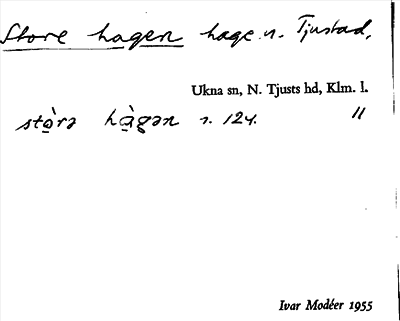 Store hagen hage n. Tjustad,
Ukna sn, N. Tjusts hd, Klm. l.
stò̱rə hà̱gən n. 124. "
Ivar Modéer 1955